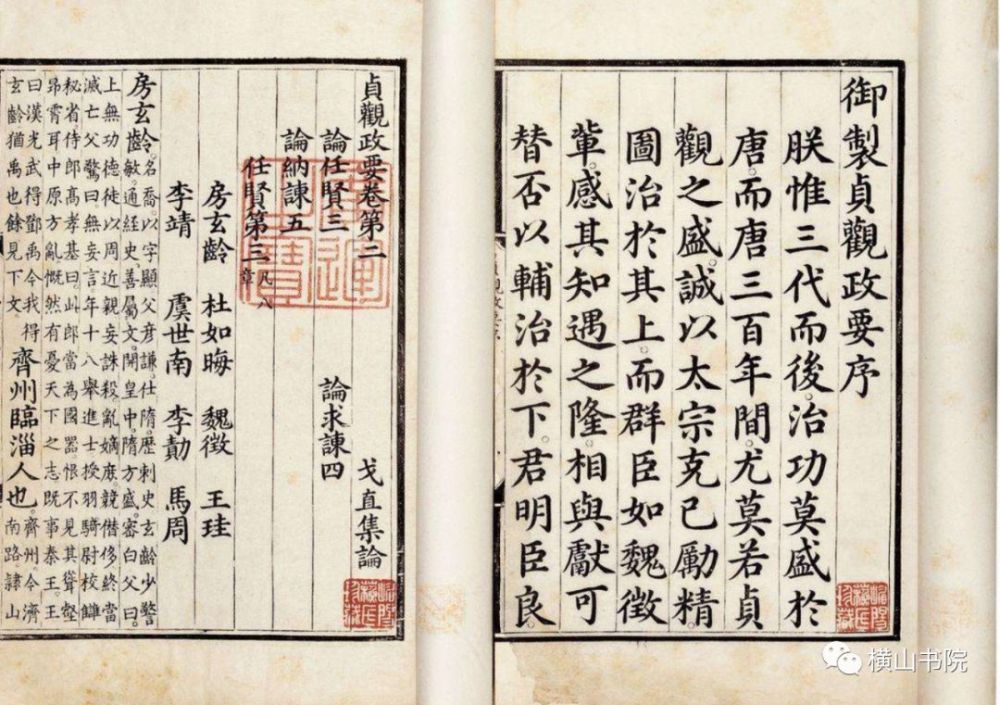 御製貞觀政要序
朕惟三代而後。治功莫盛於
唐。而唐三百年間。尤莫若貞
觀之盛。誠以太宗克已勵精
圖治於其上。而群臣如魏徵
輩。感其知遇之隆。相與獻可
替否以輔治於下。君明臣良。
貞觀政要卷第二
戈直集論
論任賢三 論求諫四
論納諫五
任賢第三 凡八章
房玄齡 杜如晦 魏徵 王珪
李靖 虞世南 李勣 馬周
房玄齡。名喬。以字顯。父彥謙。仕隋。歷刺史。玄齡少警
敏。通經史。善屬文。開皇中。隋方盛。密白父曰。
上無功德。徒以周近親。妄誅殺。亂嫡庶。競僭侈。終當
滅亡。父驚曰。無妄言。年十八。舉進士。授羽騎尉。校讎
秘省。侍郎高孝基曰。此郎當為國器。恨不見其聳壑
昂霄耳。中原方亂。慨然有憂天下之志。既事秦王。王
曰。漢光武得鄧禹。今我得
玄齡猶禹也。餘見下文。
齊州臨淄人也。
齊州。今濟
南路。隸山
横山书院